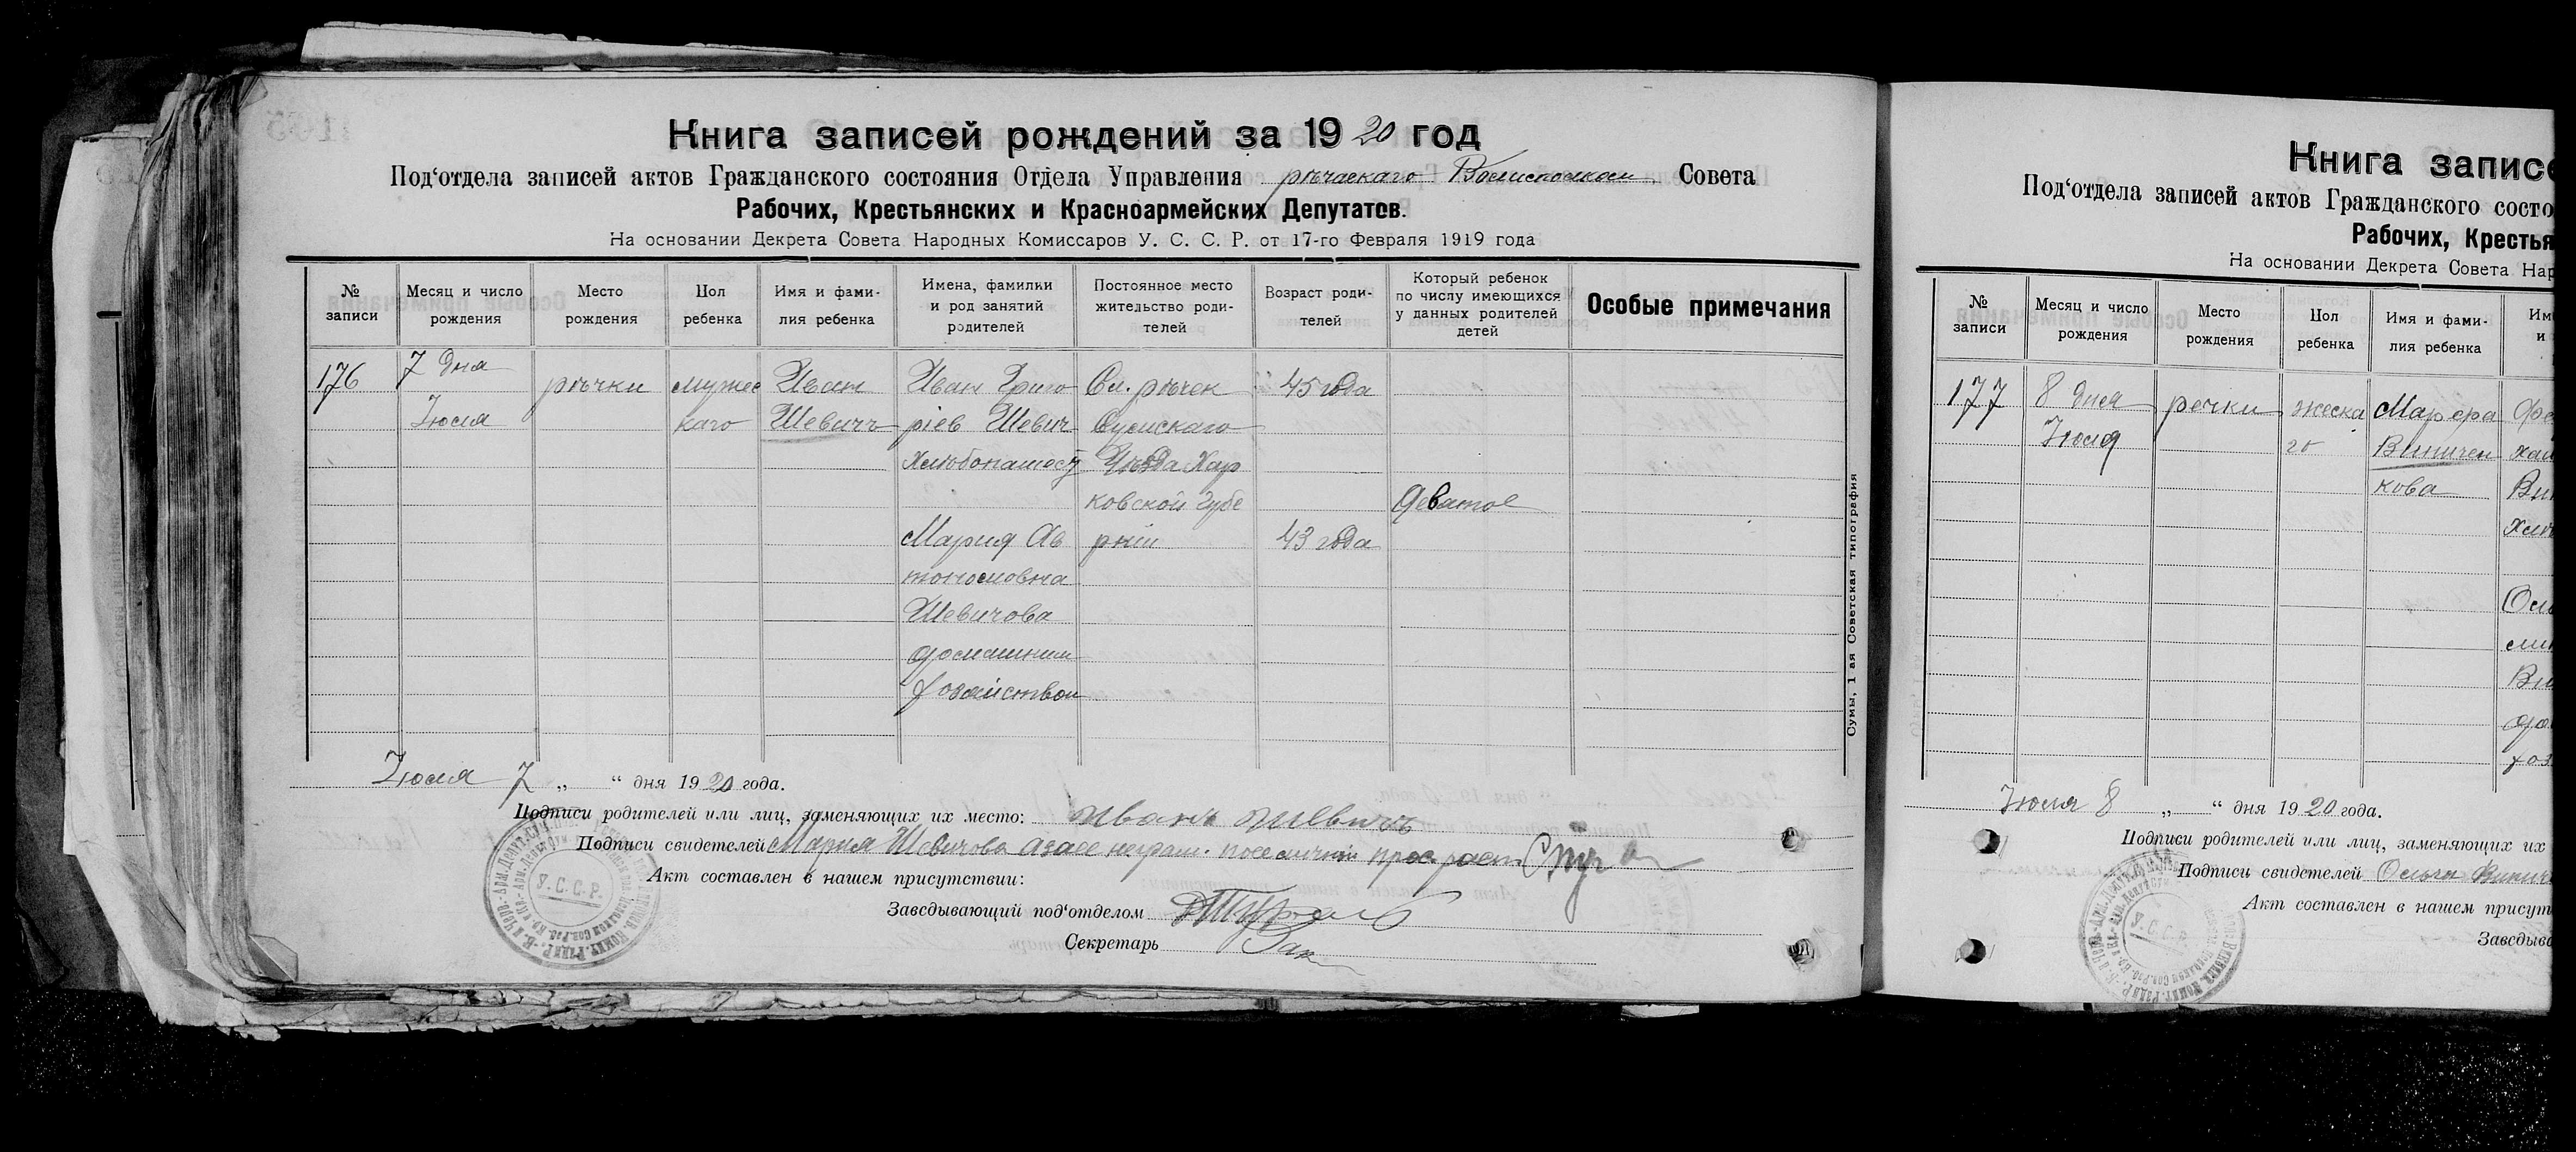 Книга записей рождений за 1920 год
Под‘отдела записей актов Гражданского состояния Отдела Управления рѣчаскаго Волисполком Совета
Рабочих, Крестьянских и Красноармейских Депутатов.
На основании Декрета Совета Народных Комиссаров У. С. С. Р. от 17-го Февраля 1919 года
№ записи
Месяц и число рождения
Место рождения
Пол ребенка
Имя и фами-
лия ребенка
Имена, фамилии
и род занятий
родителей
Постоянное место
жительство роди-
телей
Возраст роди-
телей
Который ребенок
по числу имеющихся
у данных родителей
детей
Особые примечания
176
7 дня
Июля
рѣчки
мужес
каго
Иван
Шевичъ
Иван Григо
ріев Шевич
хлѣбопашест
Мария Ав
тономовна
Шевичова
домашним
хозяйством
Сл. рѣчек
Сумскаго
Уѣзда Хар
ковской губе
рніи
45 года
43 года
Девятое
Июля 7 „ “ дня 1920 года.
Подписи родителей или лиц, заменяющих их место: Иванъ Шевичъ
Подписи свидетелей Мария Шевичова а за ее неграм.
Акт составлен в нашем присутствии:
Заведывающий под‘отделом
Секретарь
Сумы, 1 ая Советская типография
У.С.С.Р.
Книга записе
Под‘отдела записей актов Гражданского состо
Рабочих, Крестья
На основании Декрета Совета Нар
№ записи
Месяц и число рождения
Место рождения
Пол ребенка
Имя и фами-
лия ребенка
Им
и
177
8 дня
Июля
речки
жеска
го
Марфа
Виничен
кова
Июля 8 „ “ дня 1920 года.
Подписи родителей или лиц, заменяющих их
Подписи свидетелей Ольга Винич
Акт составлен в нашем присут
Заведыв
У.С.С.Р.